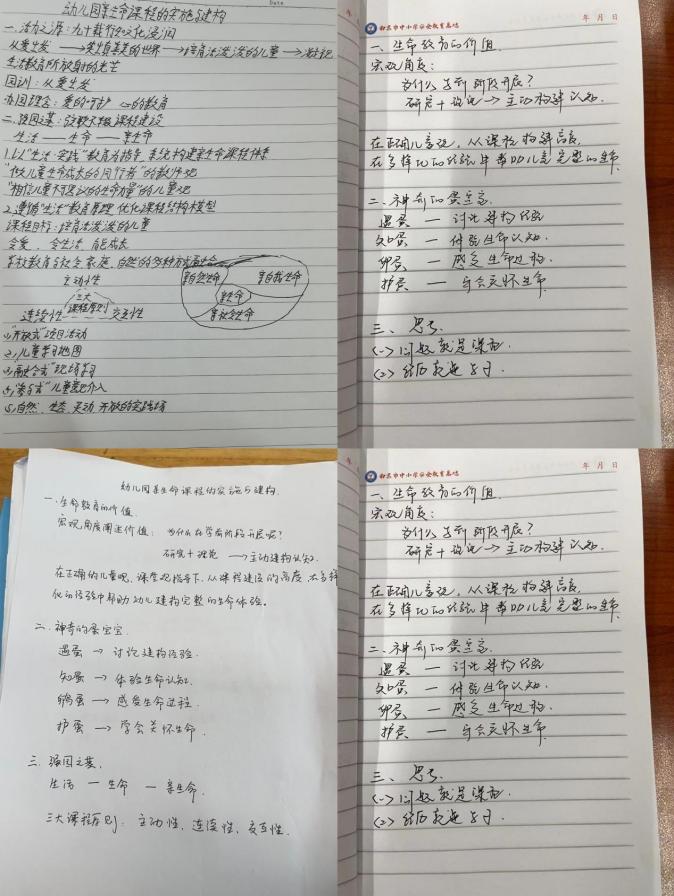 Date
幼儿园亲生命课程的实施与建构
一、活力之源:九十载行知文化浸润
从爱出发 → 突出真美的世界 → 培育活泼泼的儿童
生活教育所放射的光芒
园训:从爱出发
办园理念:爱的守护 心的教育
二、强园之基:课程建设
生活 — 生命 — 亲生命
1.以“生活·实践”教育为指导 系统构建亲生命课程体系
“做儿童生命成长的同行者”的教师观
“相信儿童不可思议的生命力量”的儿童观
2.遵循“生活”教育原理 优化课程结构模型
课程目标:培育活泼泼的儿童
会爱、会生活、自能成长
学校教育与社会、家庭、自然的多种方式融合
主动性
三大
课程原则
连续性 交互性
亲自然生命
亲自我生命
亲生命
亲社会生命
(1)“开放式”项目活动
(2)儿童学习地图
(3)“融合式”现场学习
(4)“参与式”儿童意见介入
(5)自然、生态、灵动、开放的实践场
年 月 日
一、生命教育的价值
宏观角度:
为什么在学前阶段开展?
研究+说记→主动构建认知.
在正确儿童观,从课程构建高度,
在多样化的经验中帮助儿童完整的生命
二、神奇的蛋宝宝
遇蛋 — 讨论建构经验
知蛋 — 体验生命认知.
孵蛋 — 感受生命过程.
护蛋 — 学会关怀生命.
三、思考
(一)问题就是课程.
(二)经历就是学习.
幼儿园亲生命课程的实施与建构
一、生命教育的价值.
宏观角度阐述价值:为什么在学前阶段开展呢?
研究+理论 → 主动建构认知.
在正确的儿童观、课程观指导下,从课程建设的高度,在多样
化的经验中帮助幼儿建构完整的生命体验。
二、神奇的蛋宝宝.
遇蛋 → 讨论建构经验.
知蛋 → 体验生命认知.
孵蛋 → 感受生命过程.
护蛋 → 学会关怀生命.
三、强园之基.
生活 — 生命 — 亲生命.
三大课程原则:主动性,连续性,交互性.
年 月 日
一、生命教育的价值
宏观角度:
为什么在学前阶段开展?
研究+说记→主动构建认知.
在正确儿童观,从课程构建高度,
在多样化的经验中帮助儿童完整的生命
二、神奇的蛋宝宝
遇蛋 — 讨论建构经验
知蛋 — 体验生命认知.
孵蛋 — 感受生命过程.
护蛋 — 学会关怀生命.
三、思考
(一)问题就是课程.
(二)经历就是学习.